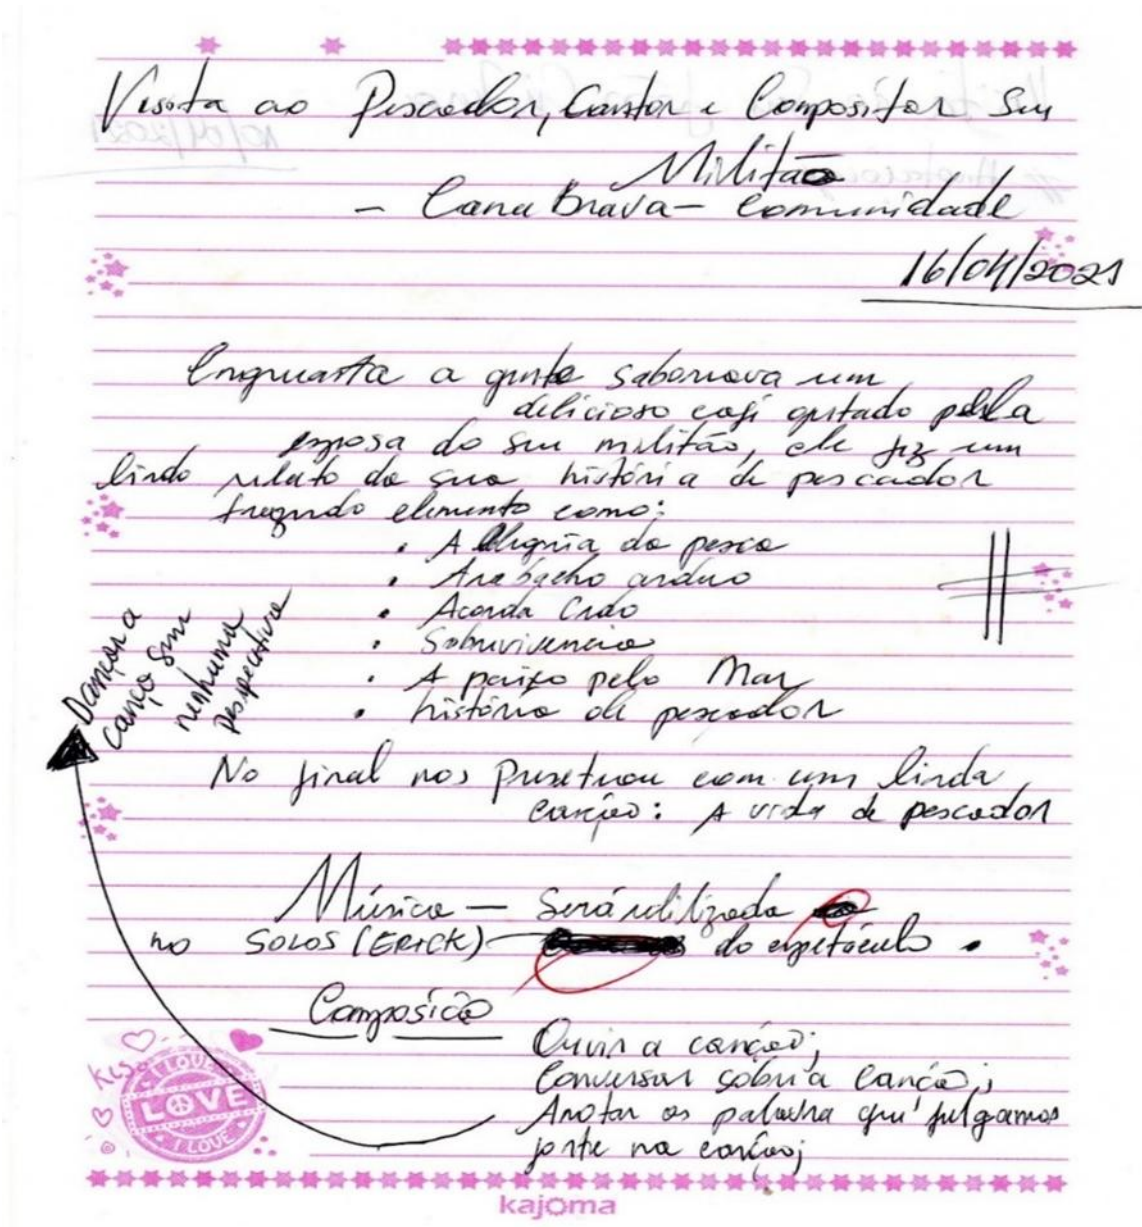 Visita ao Pescador, Cantor e Compositor Seu
Militão
- Cana Brava - Comunidade
16/04/2021
Enquanta a gente saboriava um
delicioso café ofertado pela
esposa do seu militão, ele fez um
lindo relato da sua história de pescador
trazendo elemento como:
• A Alegria da pesca
• Arabacho arduo
• Acorda Cedo
• Sobrivivencia
• A paixo pelo Mar
• história de pescador
Dançar a
canço sem
nenhuma
perspectiva
No final nos Presetuou com um linda
canção: A vida de pescador
Música - Será utilizada
no SOLOS (ERICK) do espetáculo.
Composicão
Ouvir a canção;
Conversar sobri a Canção;
Anotar as palavra que julgamos
forte na canção;
Kiss
I LOVE
LOVE
I LOVE
kajoma